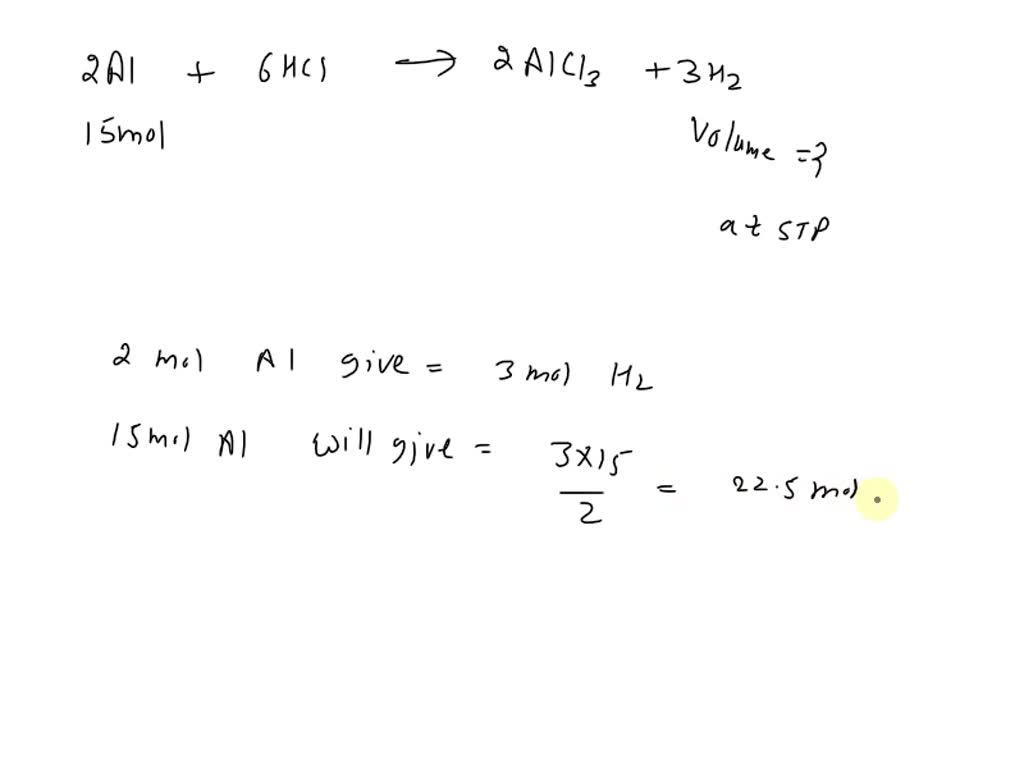 2Al + 6HCl → 2AlCl3 + 3H2
15mol
Volume = ?
at STP
2 mol Al give = 3 mol H2
15mol Al will give = 3×15/2 = 22.5 mol